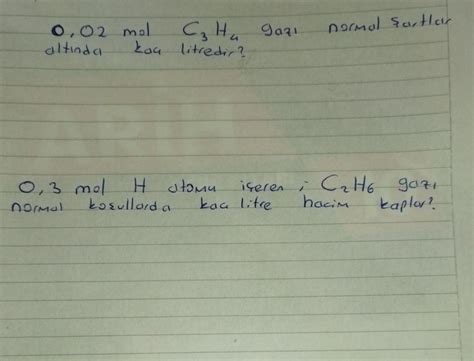 0,02 mol C₃H₄ gazı normal şartlar
altında kaç litredir?
0,3 mol H atomu içeren ; C₂H₆ gazı
normal koşullarda kaç litre hacim kaplar?